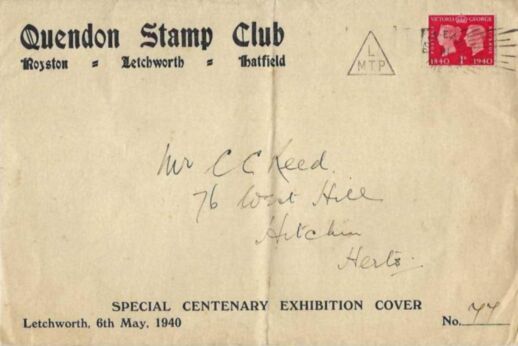 Quendon Stamp Club
Royston = Letchworth = Hatfield
L
MTP
VICTORIA GEORGE
1840 1D 1940
Mr C C Reed.
76 West Hill
Hitchin
Herts.
SPECIAL CENTENARY EXHIBITION COVER
Letchworth, 6th May, 1940
No. 77